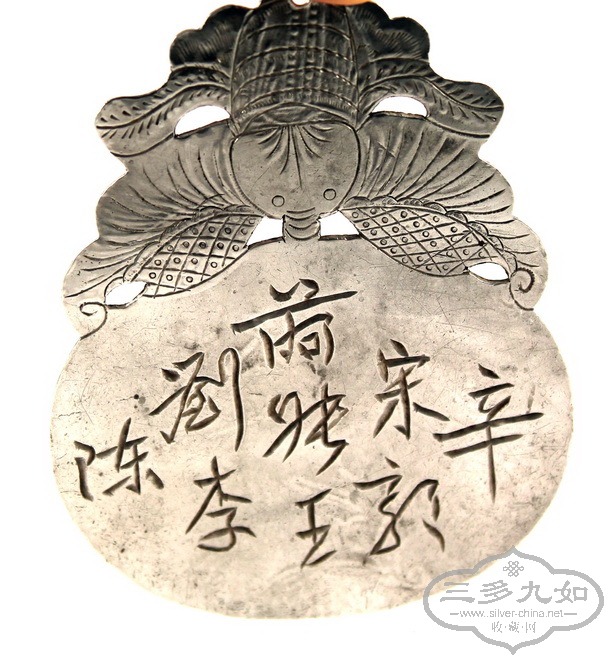 辛
宋郭
张王
劉李
陈
三多九如
www.silver-china.net
收·藏·网